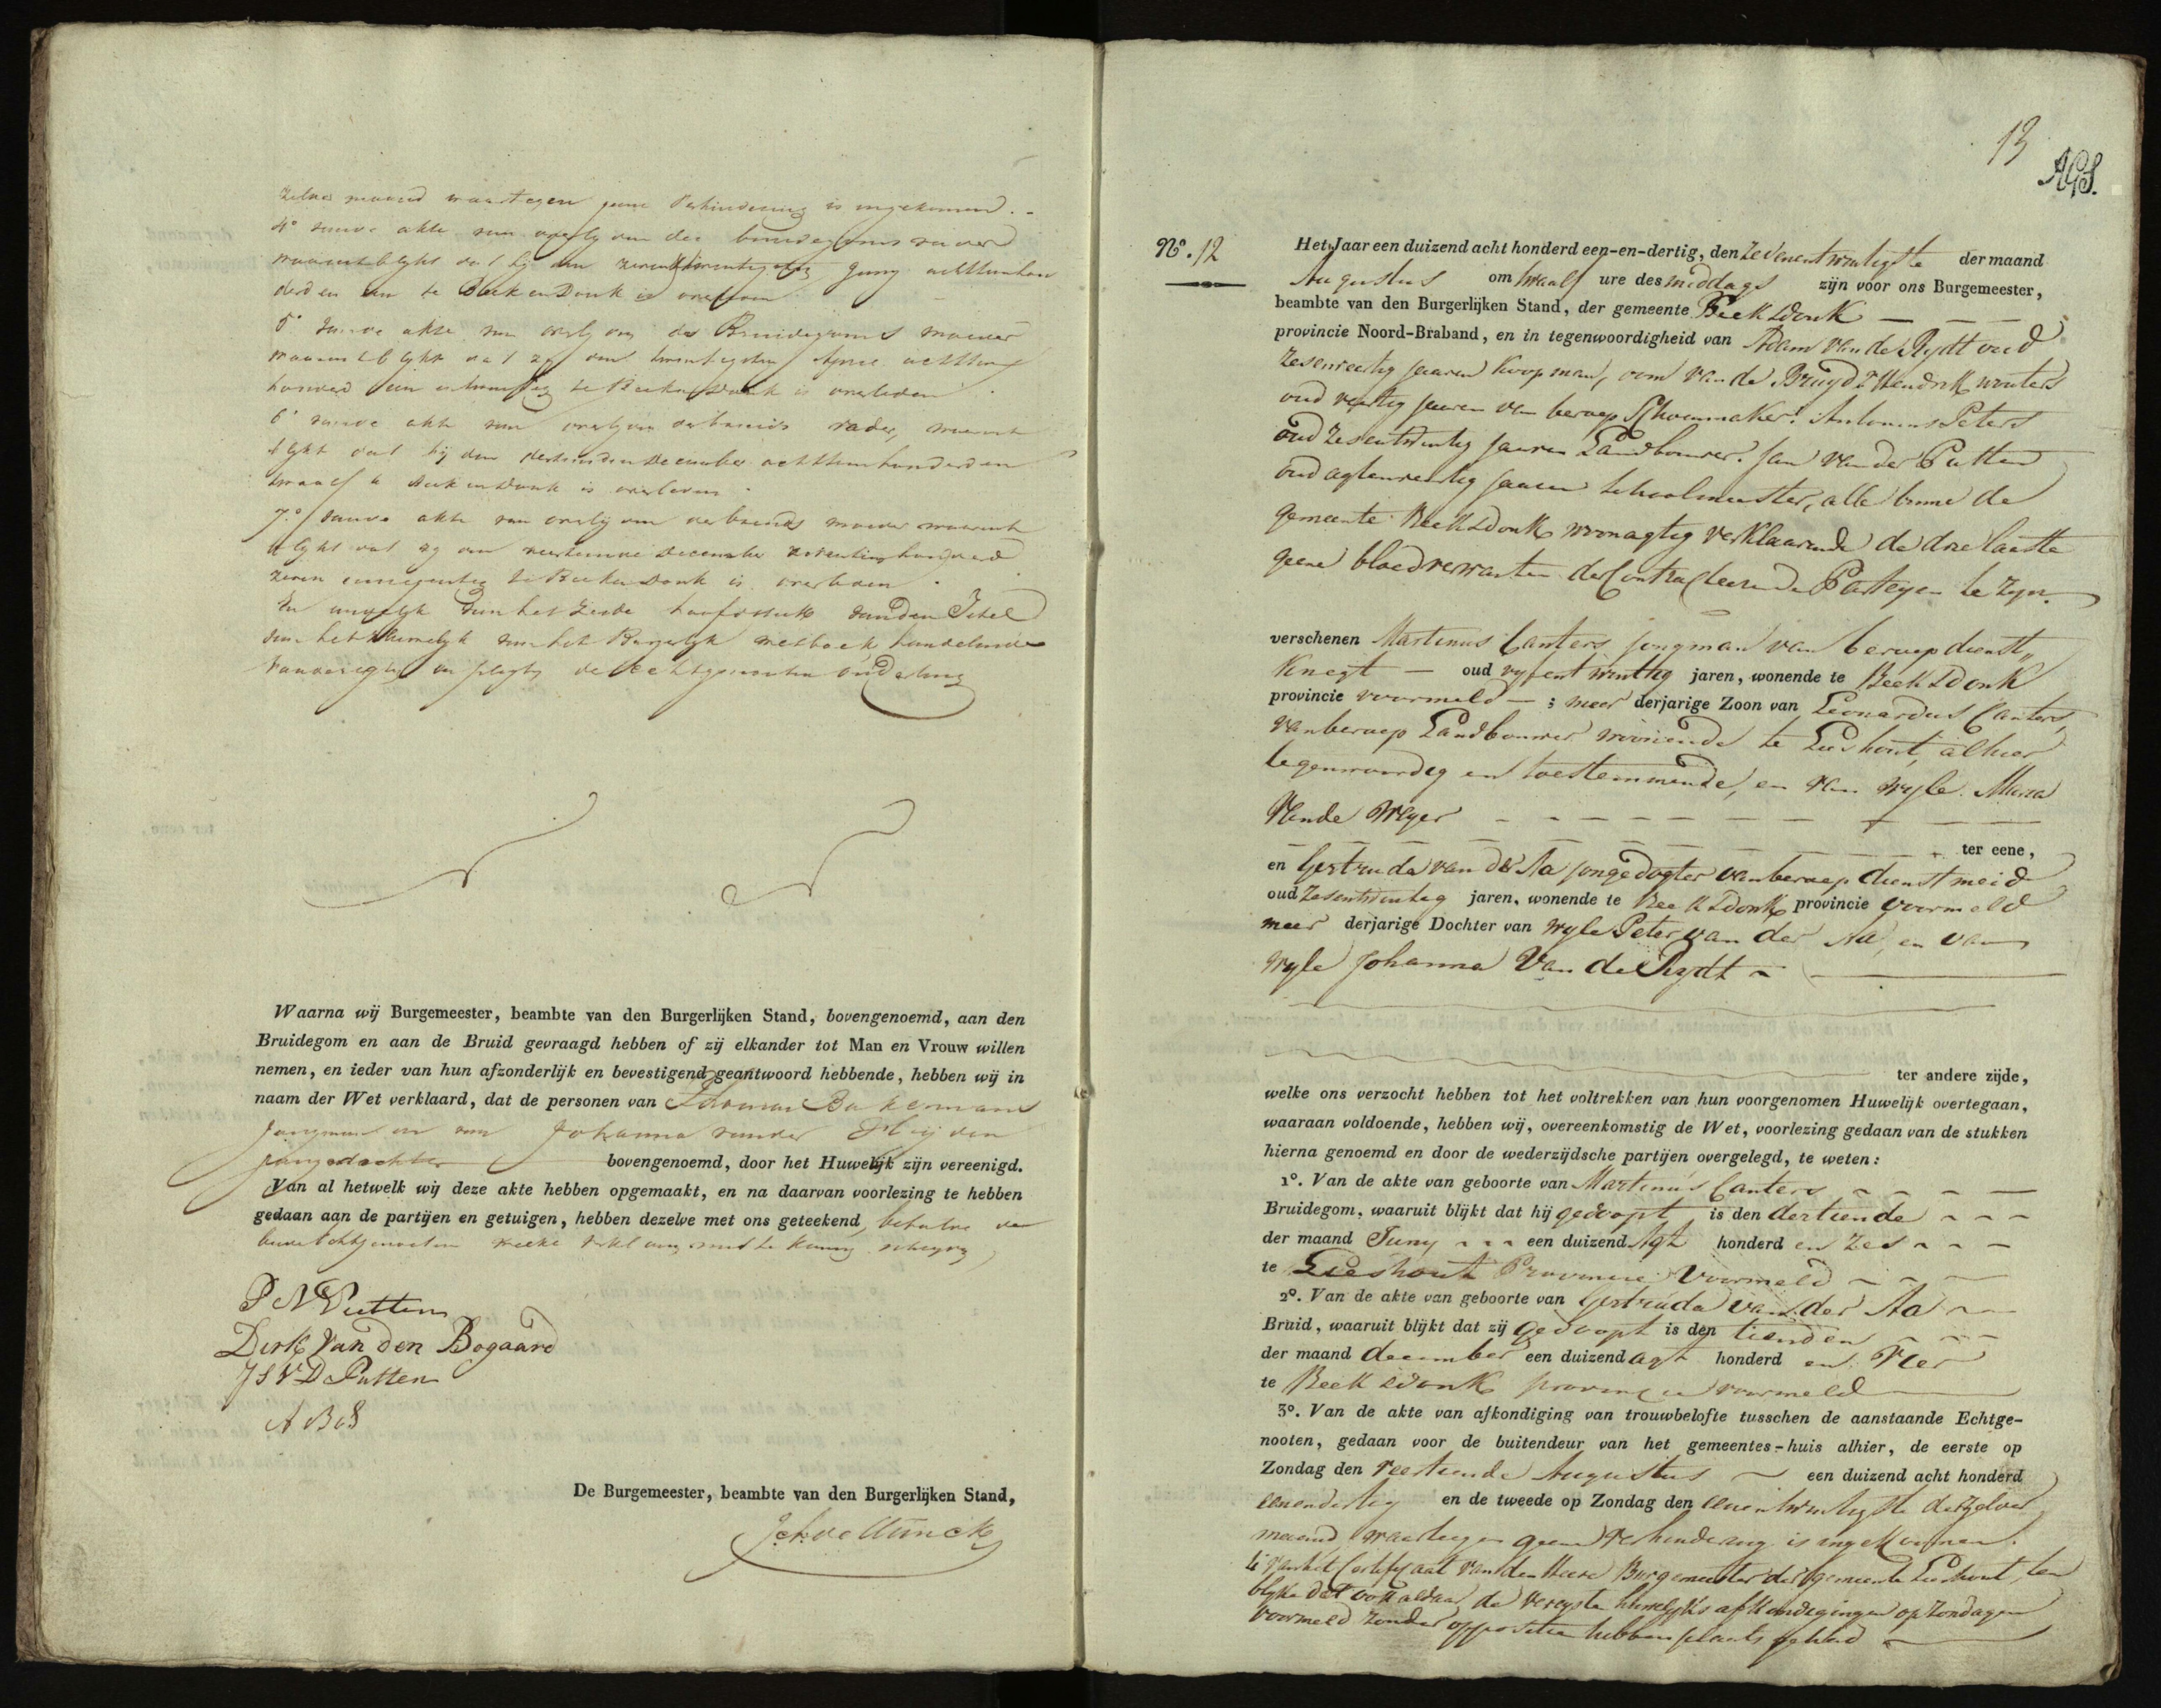 zelve maand waartegen geene verhindering is ingekomen. -
4° vande akte van overlyden des bruidegoms vader
waaruit blykt dat hij den zevenentwintigsten Juny achttienhon
derd en een te Beek en Donk is overleden
5° vande akte van overlyden des Bruidegoms moeder
waaruit blykt dat zy den twintigsten April achttien
honderd een en twintig te Beek en Donk is overleden
6° vande akte van overlyden der bruids vader, waaruit
blykt dat hij den dertienden December achttienhonderd en
twaalf te Beek en Donk is overleden
7° vande akte van overlyden der bruids moeder waaruit
blykt dat zy den veertienden December zeventienhonderd
zeven en negentig te Beek en Donk is overleden.
En eindelyk van het zesde hoofdstuk van den Titel
van het Huwelyk van het Burgelyk wetboek handelende
vande regten en plegten der echtgenooten onderling
Waarna wij Burgemeester, beambte van den Burgerlijken Stand, bovengenoemd, aan den
Bruidegom en aan de Bruid gevraagd hebben of zij elkander tot Man en Vrouw willen
nemen, en ieder van hun afzonderlijk en bevestigend geantwoord hebbende, hebben wij in
naam der Wet verklaard, dat de personen van Thomas Bakermans
Jongman en van Johanna vander Heijden
jongedochter bovengenoemd, door het Huwelijk zijn vereenigd.
Van al hetwelk wij deze akte hebben opgemaakt, en na daarvan voorlezing te hebben
gedaan aan de partijen en getuigen, hebben dezelve met ons geteekend, behalve de
beide Echtgenooten welke verklaren niet te kunnen schryven
P N Putten
Dirk Van den Bogaard
J S V D Putten
A Bos
De Burgemeester, beambte van den Burgerlijken Stand,
13
Nº. 12
Het Jaar een duizend acht honderd een-en-dertig, den Zevenentwintigste der maand
Augustus om twaalf ure des middags zijn voor ons Burgemeester,
beambte van den Burgerlijken Stand, der gemeente Beek & Donk
provincie Noord-Braband, en in tegenwoordigheid van Adam van de Rydt oud
Zesenveertig jaaren Koopman, oom van de Bruyd & Hendrik Wouters
oud veertig jaaren van beroep Schoenmaker. Antonius Peters
oud Zesentwintig jaaren Landbouwer. Jan van der Putten
oud agtenveertig jaaren Schoolmeester, alle binne de
gemeente Beek & Donk woonagtig verklaarende de drie laatste
geene bloedverwanten der Contracteerende Partyen te Zyn.
verschenen Martinus Canters jongman van beroep dienst„
Knegt — oud vyfentwintig jaren, wonende te Beek & Donk
provincie voormeld — ; meer derjarige Zoon van Leonardus Canters,
van beroep Landbouwer woonende te Lieshout, alhier
tegenwoordig en toestemmende, en van wyle Maria
Vande Weyer
ter eene,
en Gertruda van der Aa jongedogter van beroep dienstmeid
oud Zesentwintig jaren, wonende te Beek & Donk provincie voormeld
meer derjarige Dochter van wyle Peter van der Aa, en van
wyle Johanna Van de Rydt
ter andere zijde,
welke ons verzocht hebben tot het voltrekken van hun voorgenomen Huwelijk overtegaan,
waaraan voldoende, hebben wij, overeenkomstig de Wet, voorlezing gedaan van de stukken
hierna genoemd en door de wederzijdsche partijen overgelegd, te weten:
1º. Van de akte van geboorte van Martinus Canters
Bruidegom, waaruit blijkt dat hij gedoopt is den dertiende
der maand Juny een duizend Agt honderd en Zes
te Lieshout Provincie Voormeld
2º. Van de akte van geboorte van Gertruda van der Aa
Bruid, waaruit blijkt dat zij gedoopt is den tienden
der maand december een duizend agt honderd en Vier
te Beek & Donk provincie voormeld
3º. Van de akte van afkondiging van trouwbelofte tusschen de aanstaande Echtge-
nooten, gedaan voor de buitendeur van het gemeentes-huis alhier, de eerste op
Zondag den veertiende Augustus een duizend acht honderd
eenendertig en de tweede op Zondag den eenentwintigste derzelver
maand, waartegen geene verhindering is ingekoomen.
4º Van het Certificaat van den Heere Burgemeester der gemeente Lieshout, ten
blyke dat ook aldaar de vereyste huwelyks afkondigingen op Zondagen
voormeld zonder oppositie hebben plaats gehad